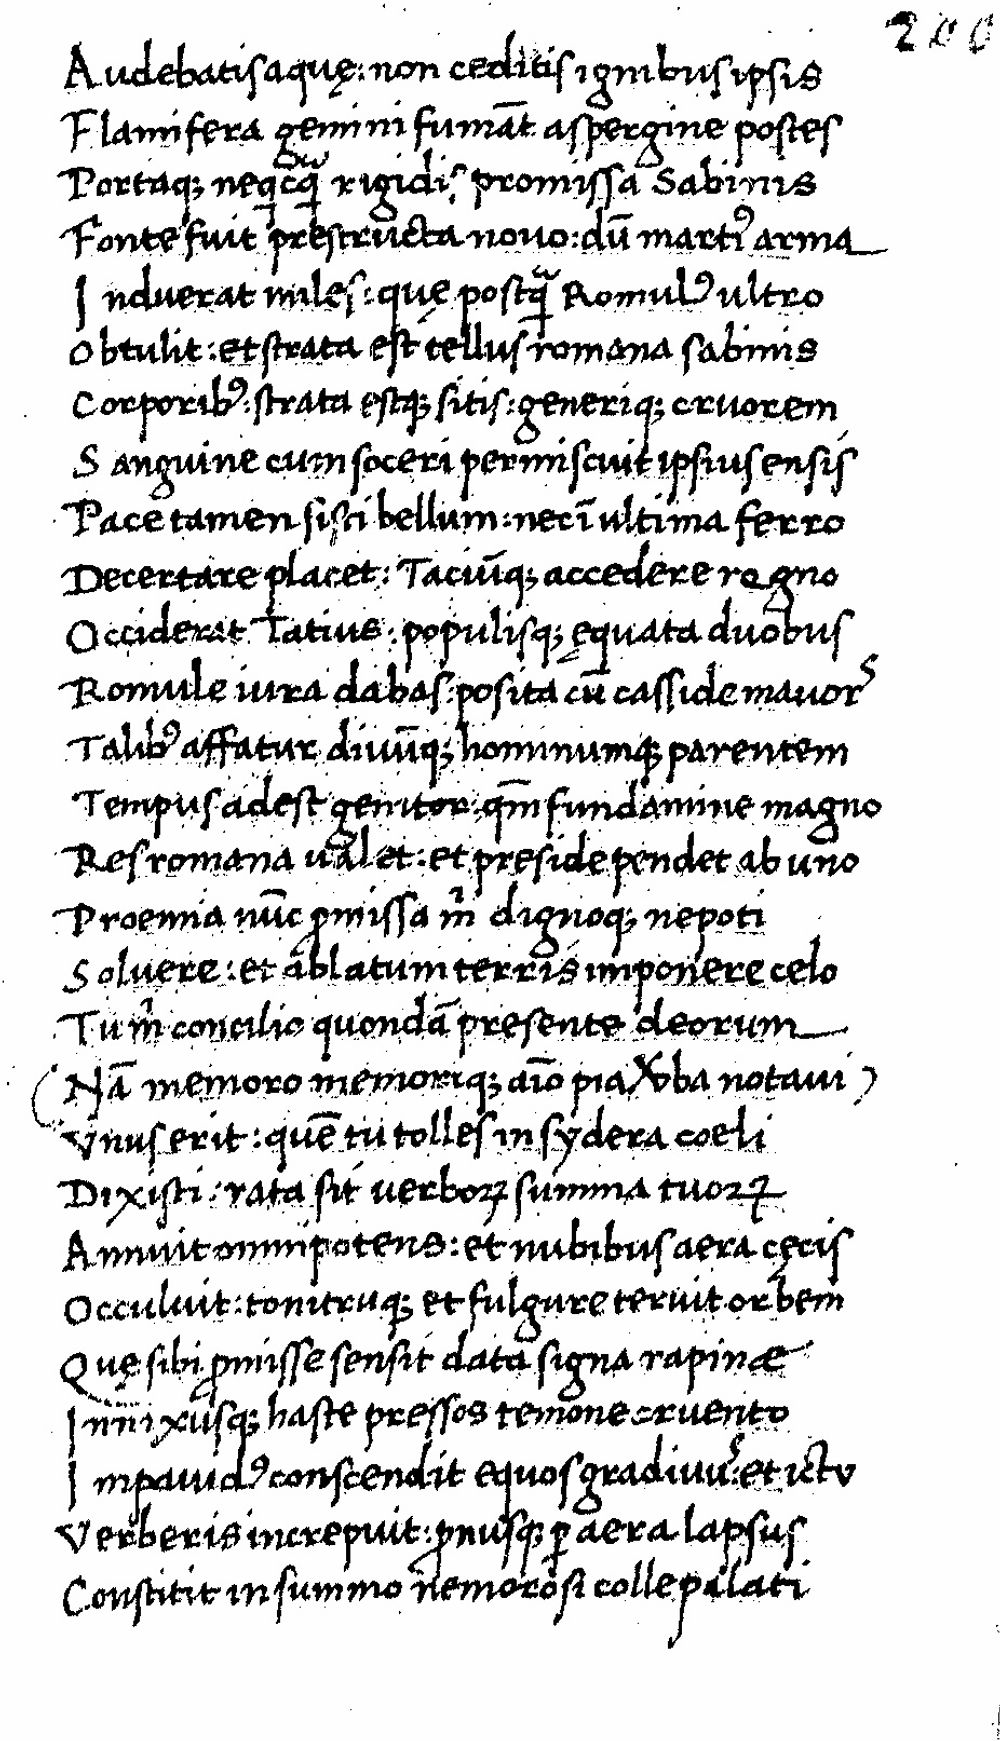 200
Audebatis aquę: non ceditis ignibus ipsis
Flamifera gemini fumāt aspergine postes
Portaq; neq̄cq̄ rigidis promissa Sabinis
Fonte fuit prestructa nouo: dū martiꝰ arma
Induerat miles: quę postq̄ Romulꝰ ultro
Obtulit: et strata est tellus romana sabinis
Corporibꝰ: strata estq; sitis: generiq; cruorem
Sanguine cum soceri permiscuit ipsius ensis
Pace tamen sisti bellum: nec ī ultima ferro
Decertare placet: Taciūq; accedere regno
Occiderat Tatius: populisq; ęquata duobus
Romule iura dabas: posita cū casside mauors
Talibꝰ affatur diuūq; hominumq; parentem
Tempus adest genitor: qm̄ fundamine magno
Res romana ualet: et preside pendet ab uno
Proemia nūc ꝓmissa m̄ dignoq; nepoti
Soluere: et ablatum terris imponere celo
Tu m̄ concilio quondā presente deorum
(Nā memoro memoriq; aīo pia v̄ba notaui)
Vnus erit: quē tu tolles in sydera coeli
Dixisti: rata sit verboꝝ summa tuoꝝ
Annuit omnipotens: et nubibus aera cęcis
Occuluit: tonitruq; et fulgure teruit orbem
Quę sibi ꝓmisse sensit data signa rapinæ
Innixusq; haste pressos temone cruento
Impauidꝰ conscendit equos gradiuus: et ictu
Verberis increpuit: ꝓnusq; ꝑ aera lapsus
Constitit in summo nemorosi colle palati